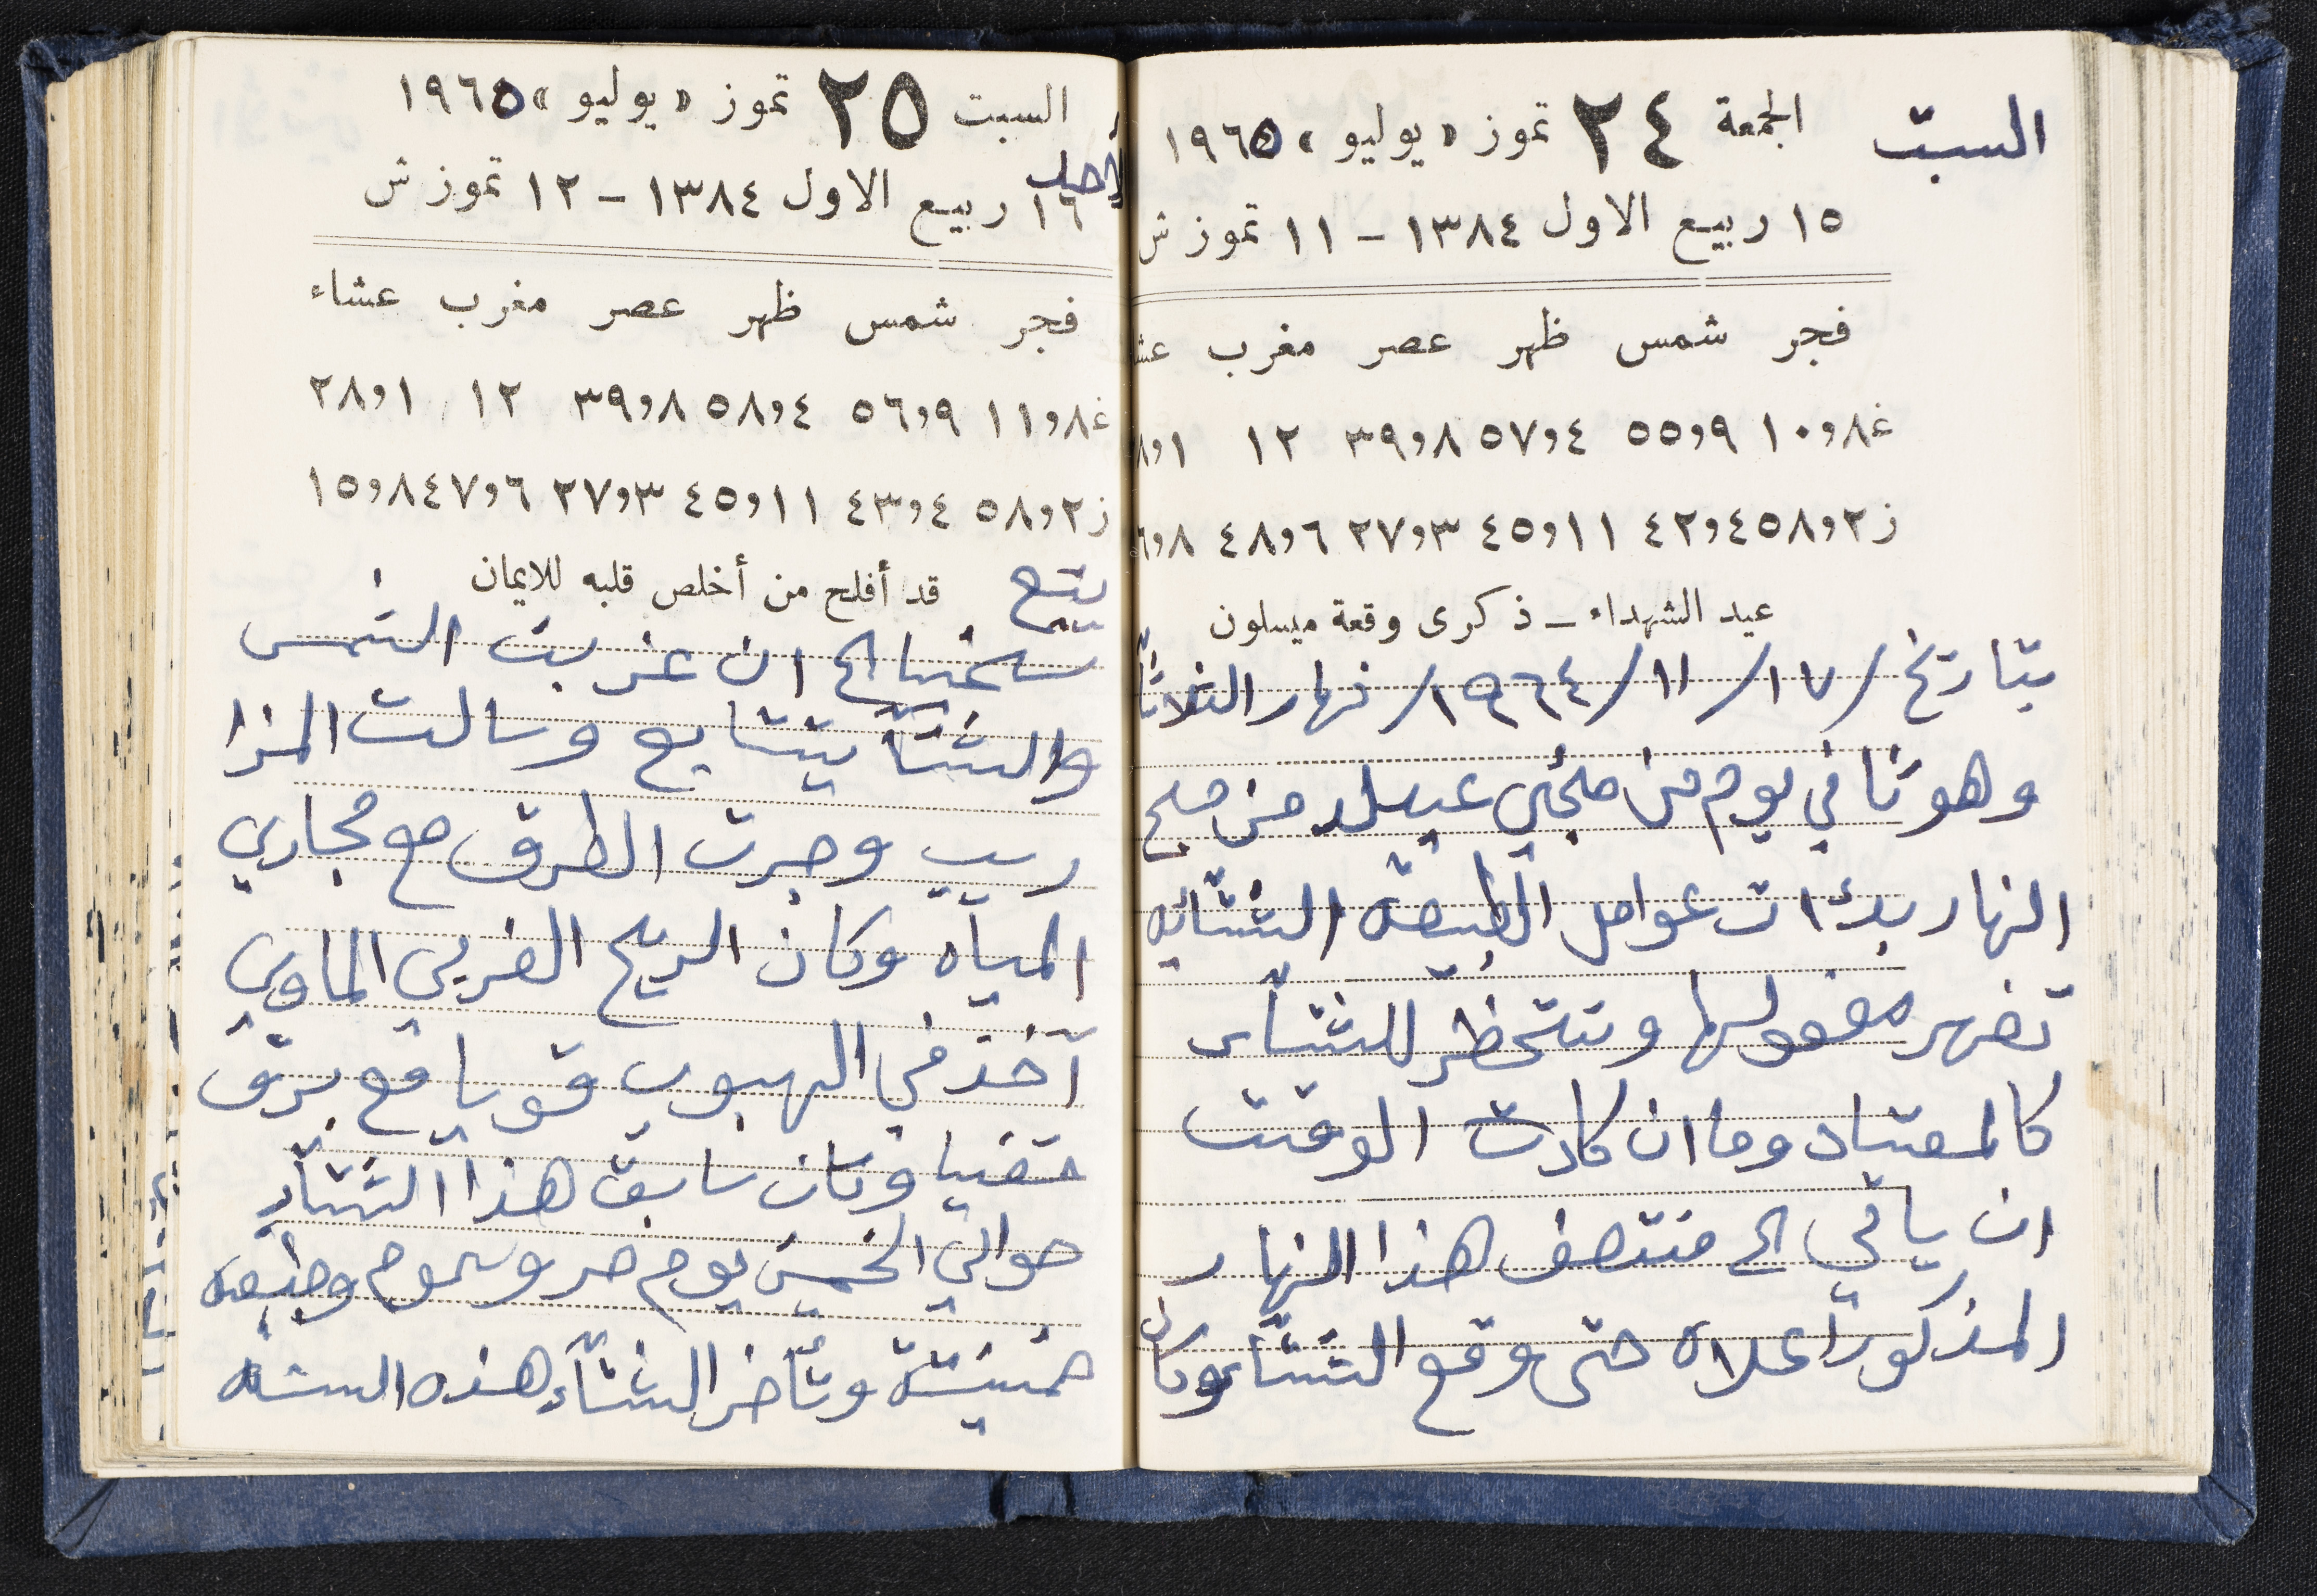 السبت
الجمعة ٢٤ تموز «يوليو» ١٩٦٥
١٥ ربيع الاول ١٣٨٤ - ١١ تموز ش
فجر شمس ظهر عصر مغرب عشا
غ ٨و١٠ ٩و٥٥ ٤و٥٧ ٨و٣٩ ١٢ ١و٨
ز ٢و٥٨ ٤و٤٢ ١١و٤٥ ٣و٢٧ ٦و٤٨ ٨و٦
عيد الشهداء - ذكرى وقعة ميسلون
بتاريخ / ١٧ / ١١ / ١٩٦٤ / نهار الثلاثا
وهو ثاني يوم من ملحُي عيلد من صبح
النهار بدءات عوامل الطبيعه الشتائيه
تضهر مفعولها وتتحظر للشتاء
كالمعتاد وما ان كادت الوقت
ان ياتي الى منتصف هذا النهار
المذكور اعلاه حتى وقع الشتاء وكان
السبت ٢٥ تموز «يوليو» ١٩٦٥
الأحد
١٦ ربيع الاول ١٣٨٤ - ١٢ تموز ش
فجر شمس ظهر عصر مغرب عشاء
غ ٨و١١ ٩و٥٦ ٤و٥٨ ٨و٣٩ ١٢ ١و٢٨
ز ٢و٥٨ ٤و٤٣ ١١و٤٥ ٣و٢٧ ٦و٤٧ ٨و١٥
يتبع قد أفلح من أخلص قلبه للايمان
سخيا الى ان غربت الشمس
والشتآ يتتابع وسالت المزا
ريب وجرت الطرق مع مجاري
المياه وكان الريح الغربي الماوي
آخذ في الهبوب قويا مع برق
خفيا وكان سابق هذا الشتاء
حوالي الخمسين يوم حر وسموم وطبيعه
خمسينية وتأخر الشتآء هذه السنه